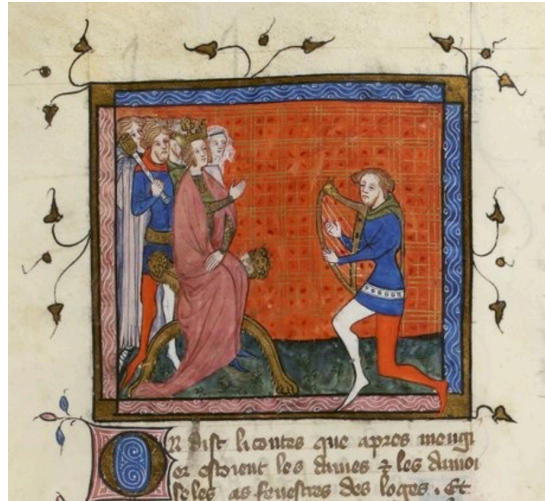 On dist li contes que apres mengi
er estoient les dames ⁊ les damoi
seles as fenestres des loges . Et